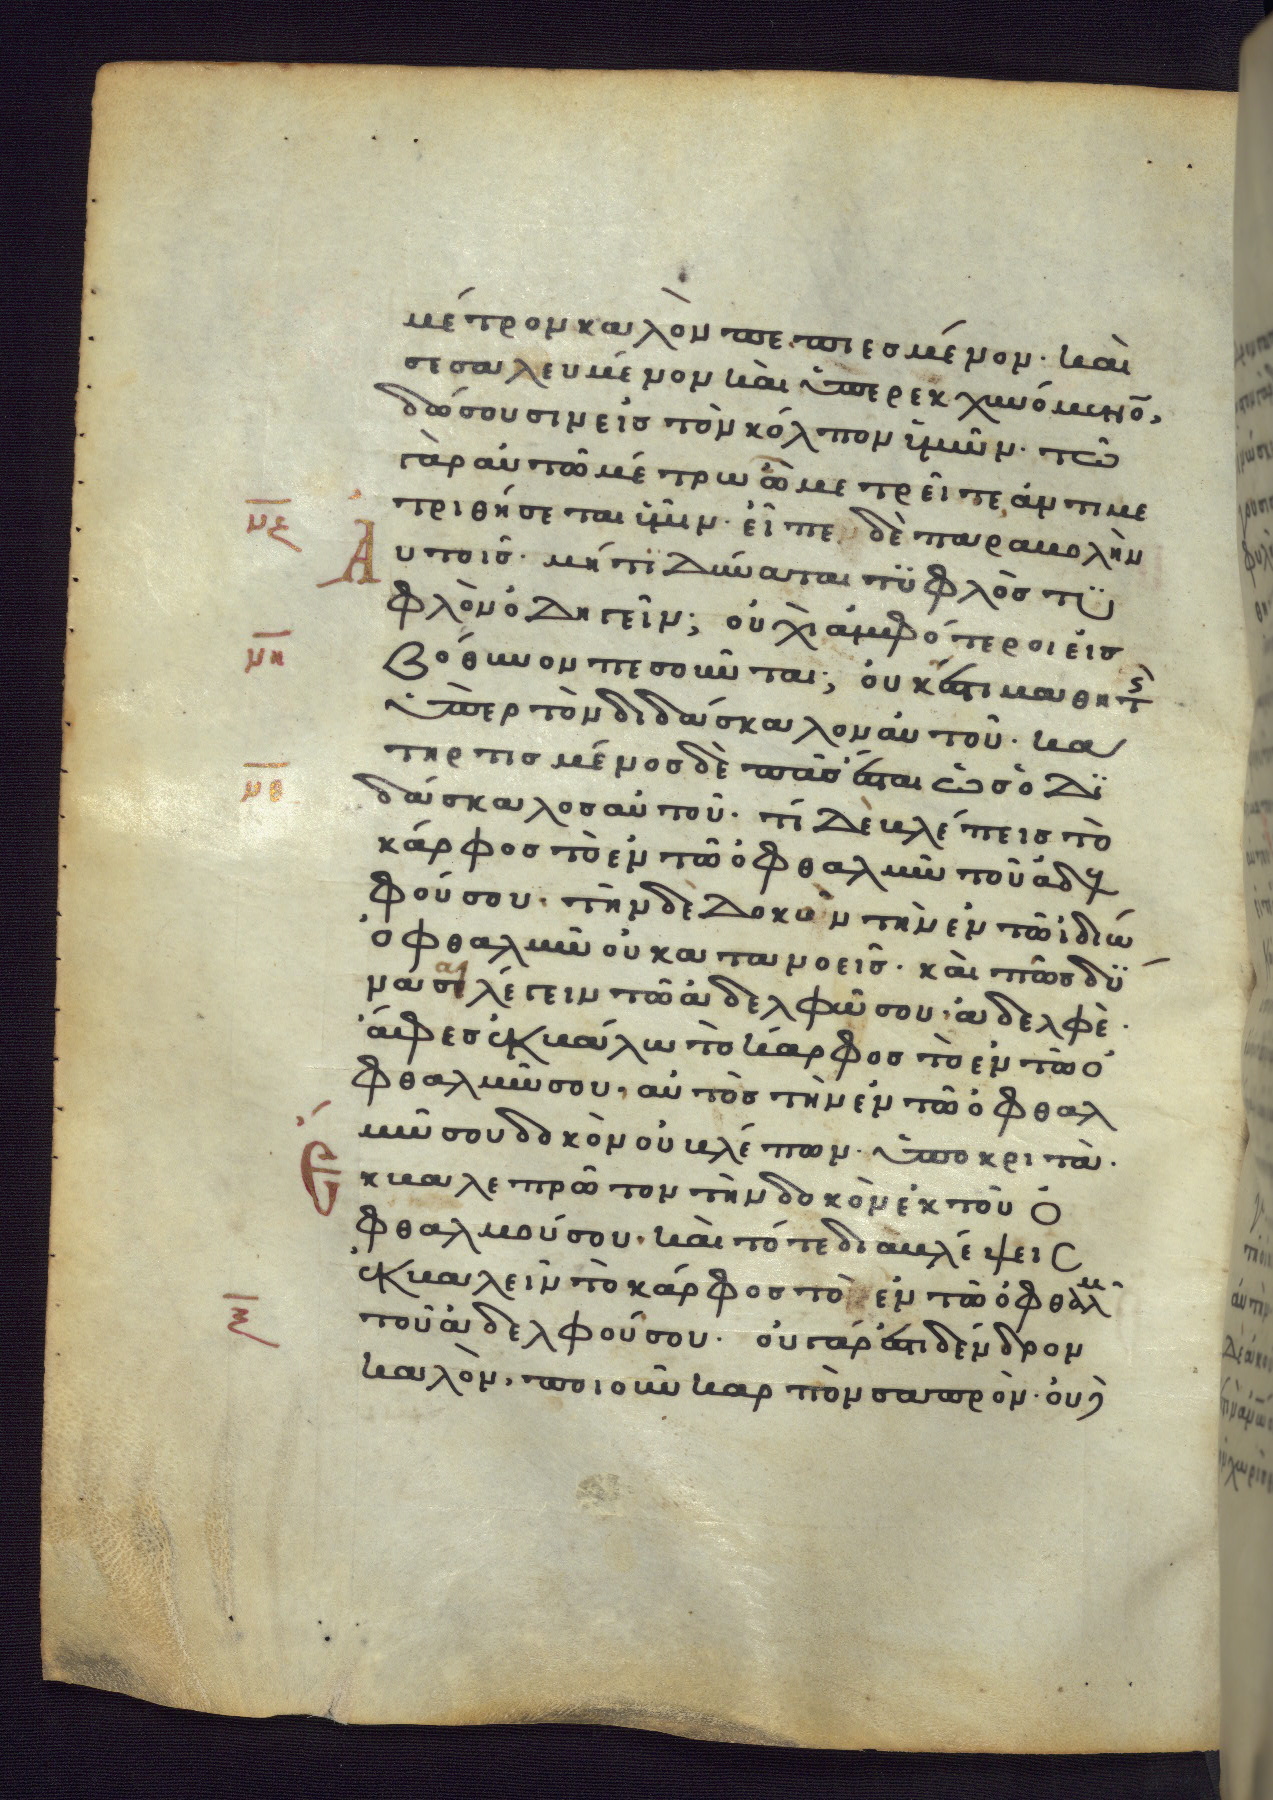 μέτρον καλὸν πεπιεσμένον· καὶ
σεσαλευμένον καὶ ὑπερεκχυνόμενο̄,
δώσουσιν εἰς τὸν κόλπον ὑμῶν· τῶ
γὰρ αὐτῶ μέτρω ὧ μετρεῖτε, ἀντιμε
τριθήσεται ὑμῖν· εἶπε δὲ παραβολὴν
μζ
Αὐτοῖς· μήτι δύναται τυφλὸς τυ
φλὸν ὁδηγεῖν; οὐχὶ ἀμφότεροι εἰς
μη
βόθυνον πεσοῦνται; οὐκ ἔστι μαθητς
ὑπὲρ τὸν διδάσκαλον αὐτοῦ· κα
τηρτισμένος δὲ πᾶς ἔσται ὡς ὁ δι
μθ
δάσκαλος αὐτοῦ· τί δὲ βλέπεις τὸ
κάρφος τὸ ἐν τῶ ὀφθαλμῶ τοῦ ἀδελ
φού σου· τὴν δὲ δοκὸν τὴν ἐν τῶ ἰδίω
ὀφθαλμῶ οὐ κατανοεῖς· καὶ πῶς δύ
νασαι λέγειν τῶ ἀδελφῶ σου· ἀδελφὲ·
ἄφες ἐκβάλω τὸ κάρφος τὸ ἐν τῶ ὀ
φθαλμῶ σου· αὐτὸς τὴν ἐν τῶ ὀφθαλ
μῶ σου δοκὸν οὐ βλέπων· ὑποκριτὰ·
Ἔκβαλε πρῶτον τὴν δοκὸν ἐκ τοῦ ὀ
φθαλμού σου· καὶ τότε διαβλέψεις
ἐκβαλεῖν τὸ κάρφος τὸ ἐν τῶ ὀφθαλμ
ν
τοῦ ἀδελφοῦ σου· οὐ γάρ ἐστι δένδρον
καλὸν, ποιοῦν καρπὸν σαπρὸν· οὐδὲ